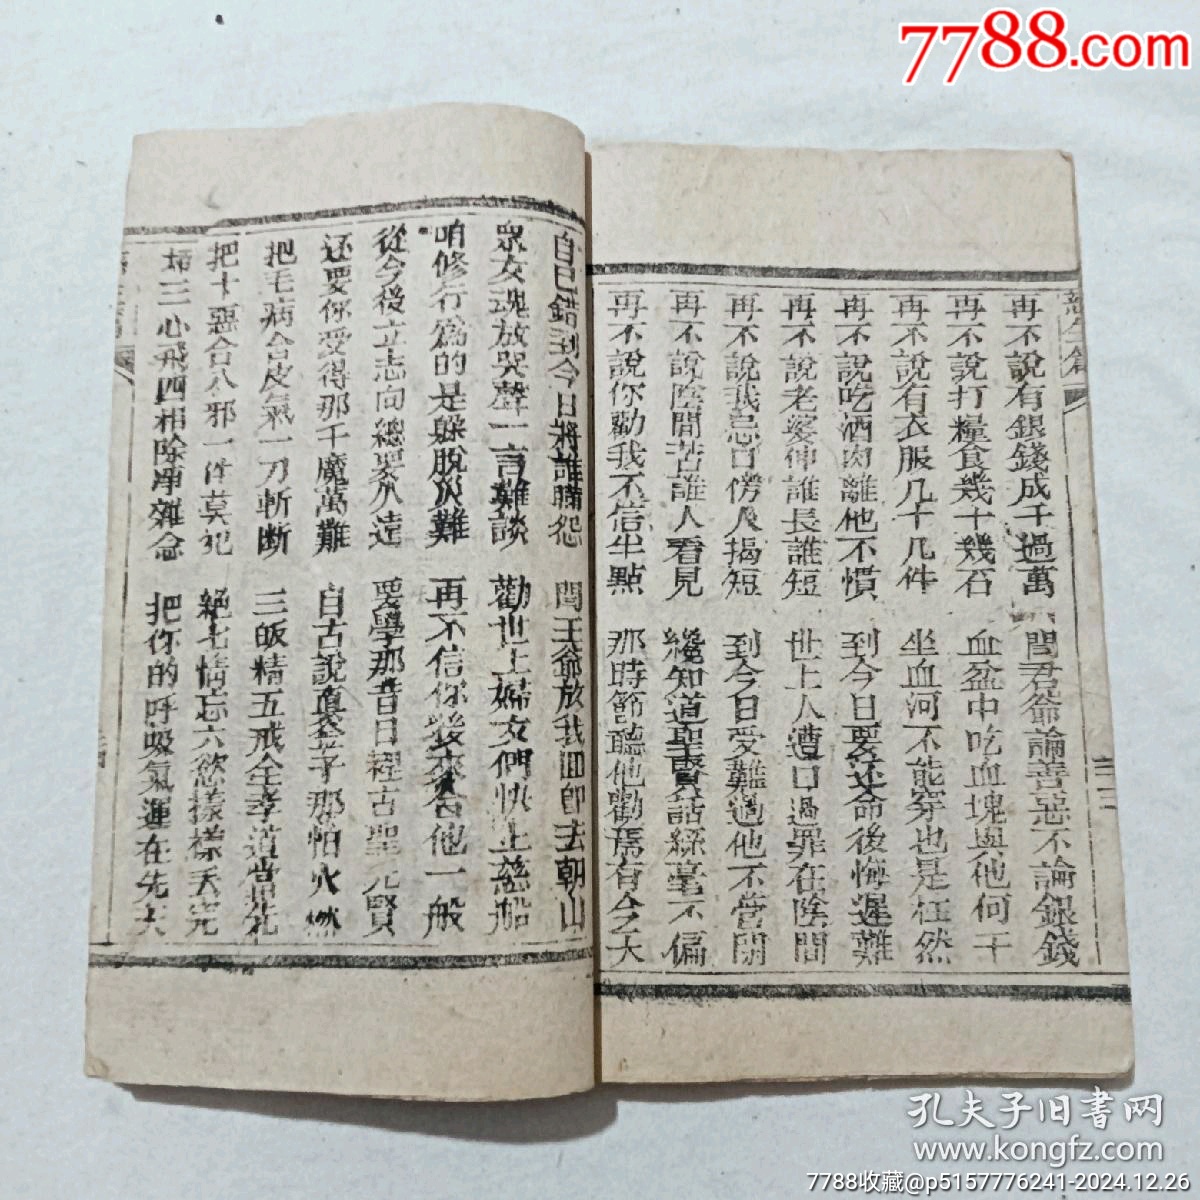 7788.com
再不說有銀錢成千過萬 閻君爺論善惡不論銀錢
再不說打糧食幾十幾石 血盆中吃血塊與他何干
再不說有衣服几十几件 坐血河不能穿也是枉然
再不說吃酒肉離他不慣 到今日要还命後悔遲難
再不說老婆伸誰長誰短 世上人遭口過罪在陰間
再不說我忌口傍人揭短 到今日受難過他不管閑
再不說陰間苦誰人看見 纔知道聖賢話絲毫不偏
再不說你勸我不信半點 那時節聽他勸焉有今天
自己錯到今日將誰瞞怨 閻王爺放我回即去朝山
眾女魂放哭聲一言難談 勸世上婦女們快上慈船
咱修行為的是躲脫災難 再不信你後來合他一般
從今後立志向總要久遠 要學那昔日裡古聖先賢
还要你受得那千魔萬難 自古說真金子那怕火燃
把毛病合皮氣一刀斬断 三皈精五戒全孝道當先
把十惡合八邪一件莫犯 絕七情忘六慾樣樣丢完
掃三心飛四相除淨雜念 把你的呼吸氣運在先天
孔夫子旧書网
www.kongfz.com
7788收藏@p5157776241-2024.12.26